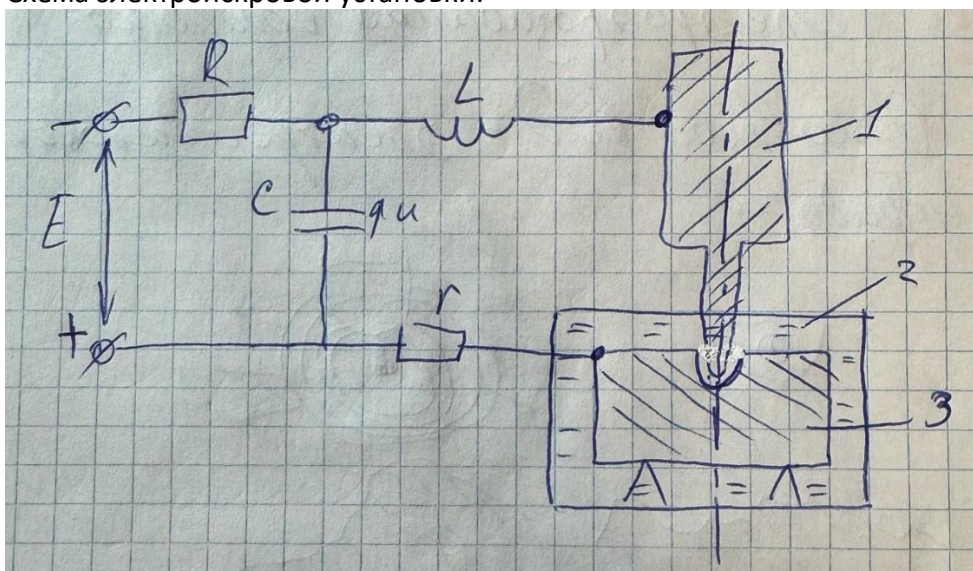 Схема электроискровой установки.
R
L
1
-
E
C
q u
2
+
r
3